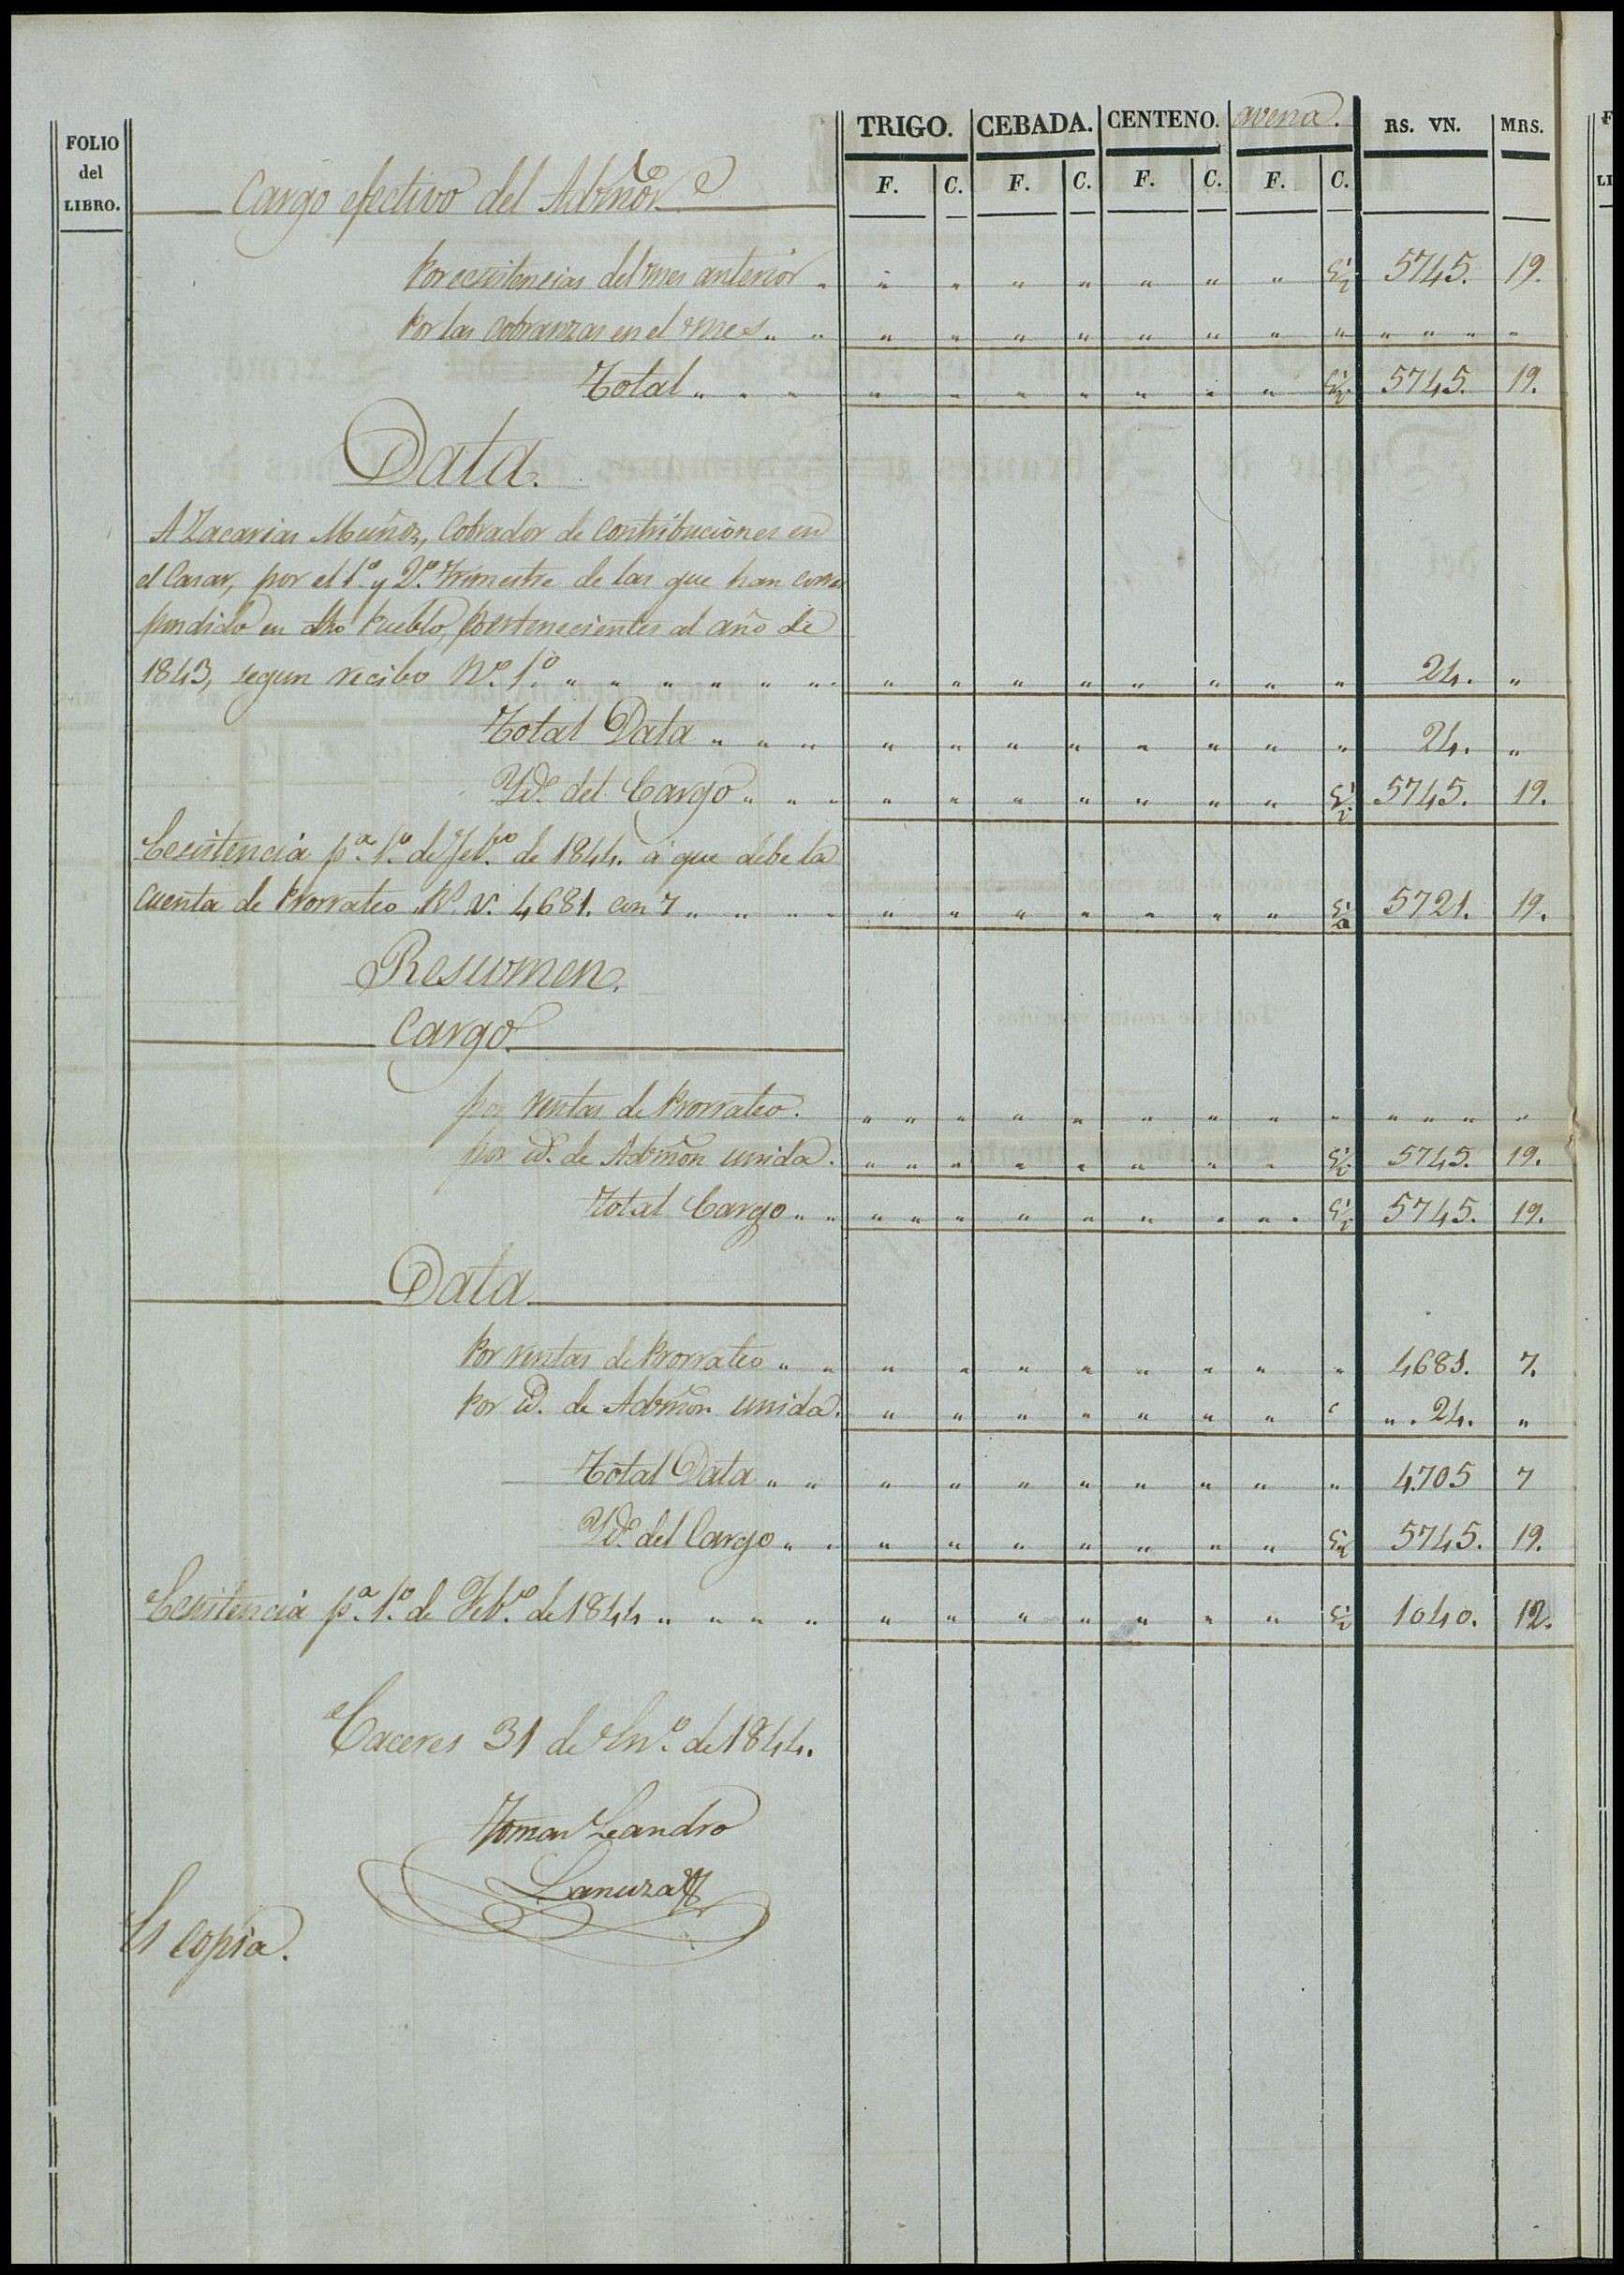 FOLIO
del
LIBRO.
TRIGO. CEBADA. CENTENO. avena. RS. VN. MRS.
F. C. F. C. F. C. F. C.
Cargo efectivo del Admōr
Por ecsistencias del mes anterior " " " " " " " " 5745. 19.
Por las cobranzas en el mes " " " " " " " " " " " " " "
Total " " " " " " " " " " 5745. 19.
Data.
A Zacarias Muñoz, Cobrador de Contribuciones en
el Casar, por el 1º y 2º trimestre de las que han corres
pondido en dho Pueblo, pertenecientes al año de
1843, segun recibo Nº 1º " " " " " " " " " " " " " " 24. "
Total Data " " " " " " " " " " " 24. "
Yd. del Cargo " " " " " " " " " " 5745. 19.
Ecsistencia pª 1º de Febº de 1844. á que debe la
cuenta de Prorrateo Rs. v. 4681. con 7 " " " " " " " " " " " 5721. 19.
Resumen.
Cargo
por rentas de Prorrateo. " " " " " " " " " " " " " "
por id. de Admōn unida. " " " " " " " " 5745. 19.
Total Cargo " " " " " " " " " " " 5745. 19.
Data
Por rentas de Prorrateo " " " " " " " " " " 4681. 7.
Por id. de Admōn unida. " " " " " " " " 24. "
Total Data " " " " " " " " " " 4705 7
Yd. del Cargo " " " " " " " " " 5745. 19.
Ecsistencia pª 1º de Febº de 1844 " " " " " " " " " " " 1040. 12.
Caceres 31 de Enº de 1844.
Tomas Leandro
Lanuza
Es copia.